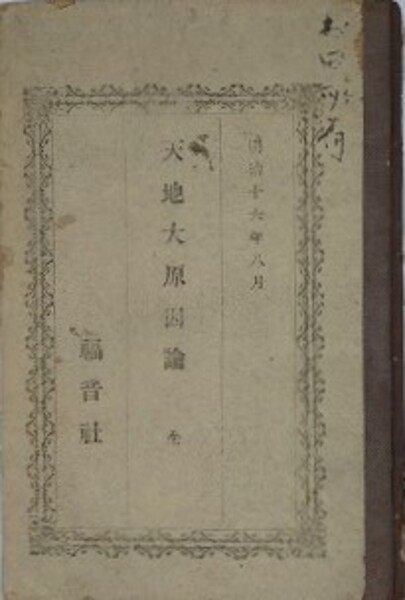 明治十六年八月
天地大原因論 全
福音社